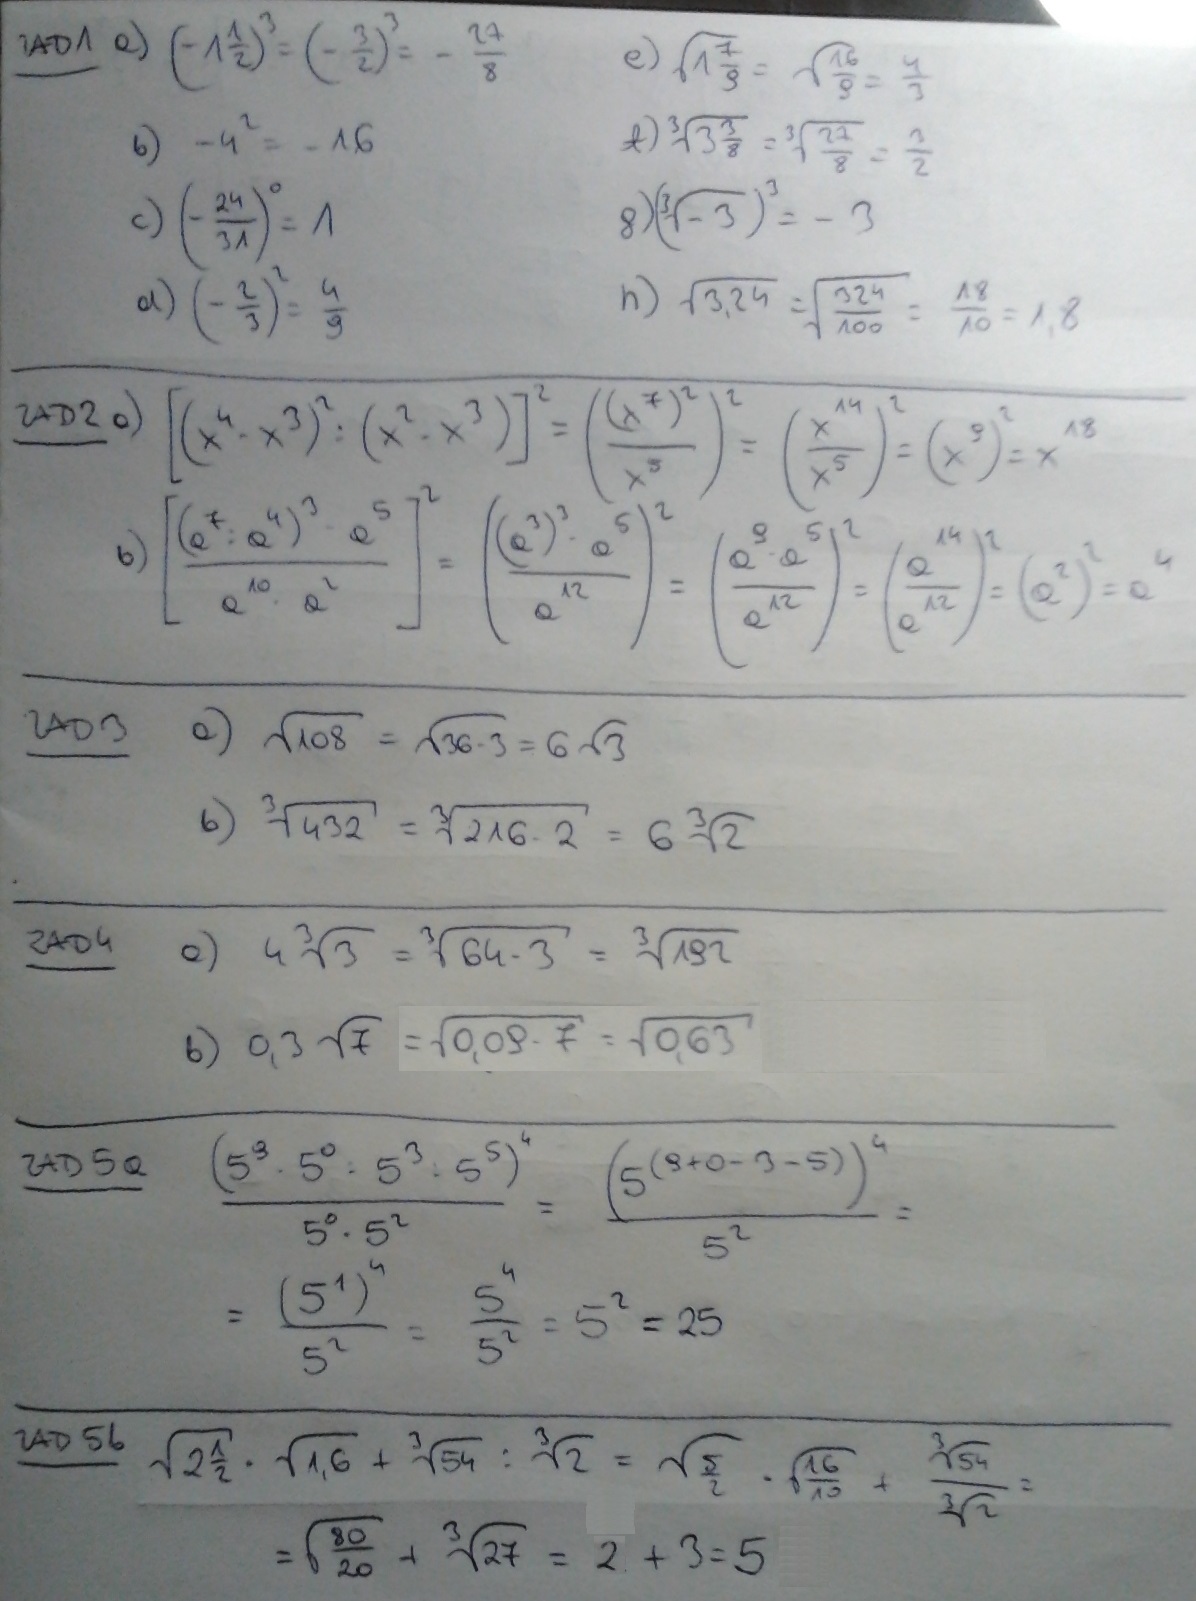 ZAD1 a) (-1 1/2)³ = (-3/2)³ = - 27/8
b) -4² = -16
c) (-24/31)⁰ = 1
d) (-2/3)² = 4/9
e) √(1 7/9) = √(16/9) = 4/3
f) ∛(3 3/8) = ∛(27/8) = 3/2
g) (∛(-3))³ = -3
h) √3,24 = √(324/100) = 18/10 = 1,8
ZAD2 a) [(x⁴·x³)² : (x²·x³)]² = ((x⁷)²/x⁵)² = (x¹⁴/x⁵)² = (x⁹)² = x¹⁸
b) [((a⁷:a⁴)³·a⁵)/(a¹⁰·a²)]² = (((a³)³·a⁵)/a¹²)² = ((a⁹·a⁵)/a¹²)² = (a¹⁴/a¹²)² = (a²)² = a⁴
ZAD3 a) √108 = √(36·3) = 6√3
b) ∛432 = ∛(216·2) = 6∛2
ZAD4 a) 4∛3 = ∛(64·3) = ∛192
b) 0,3√7 = √(0,09·7) = √0,63
ZAD5a (5⁹·5⁰:5³:5⁵)⁴/(5⁰·5²) = (5^(9+0-3-5))⁴/5² =
= (5¹)⁴/5² = 5⁴/5² = 5² = 25
ZAD5b √(2 1/2) · √1,6 + ∛54 : ∛2 = √(5/2) · √(16/10) + ∛54/∛2 =
= √(80/20) + ∛27 = 2 + 3 = 5